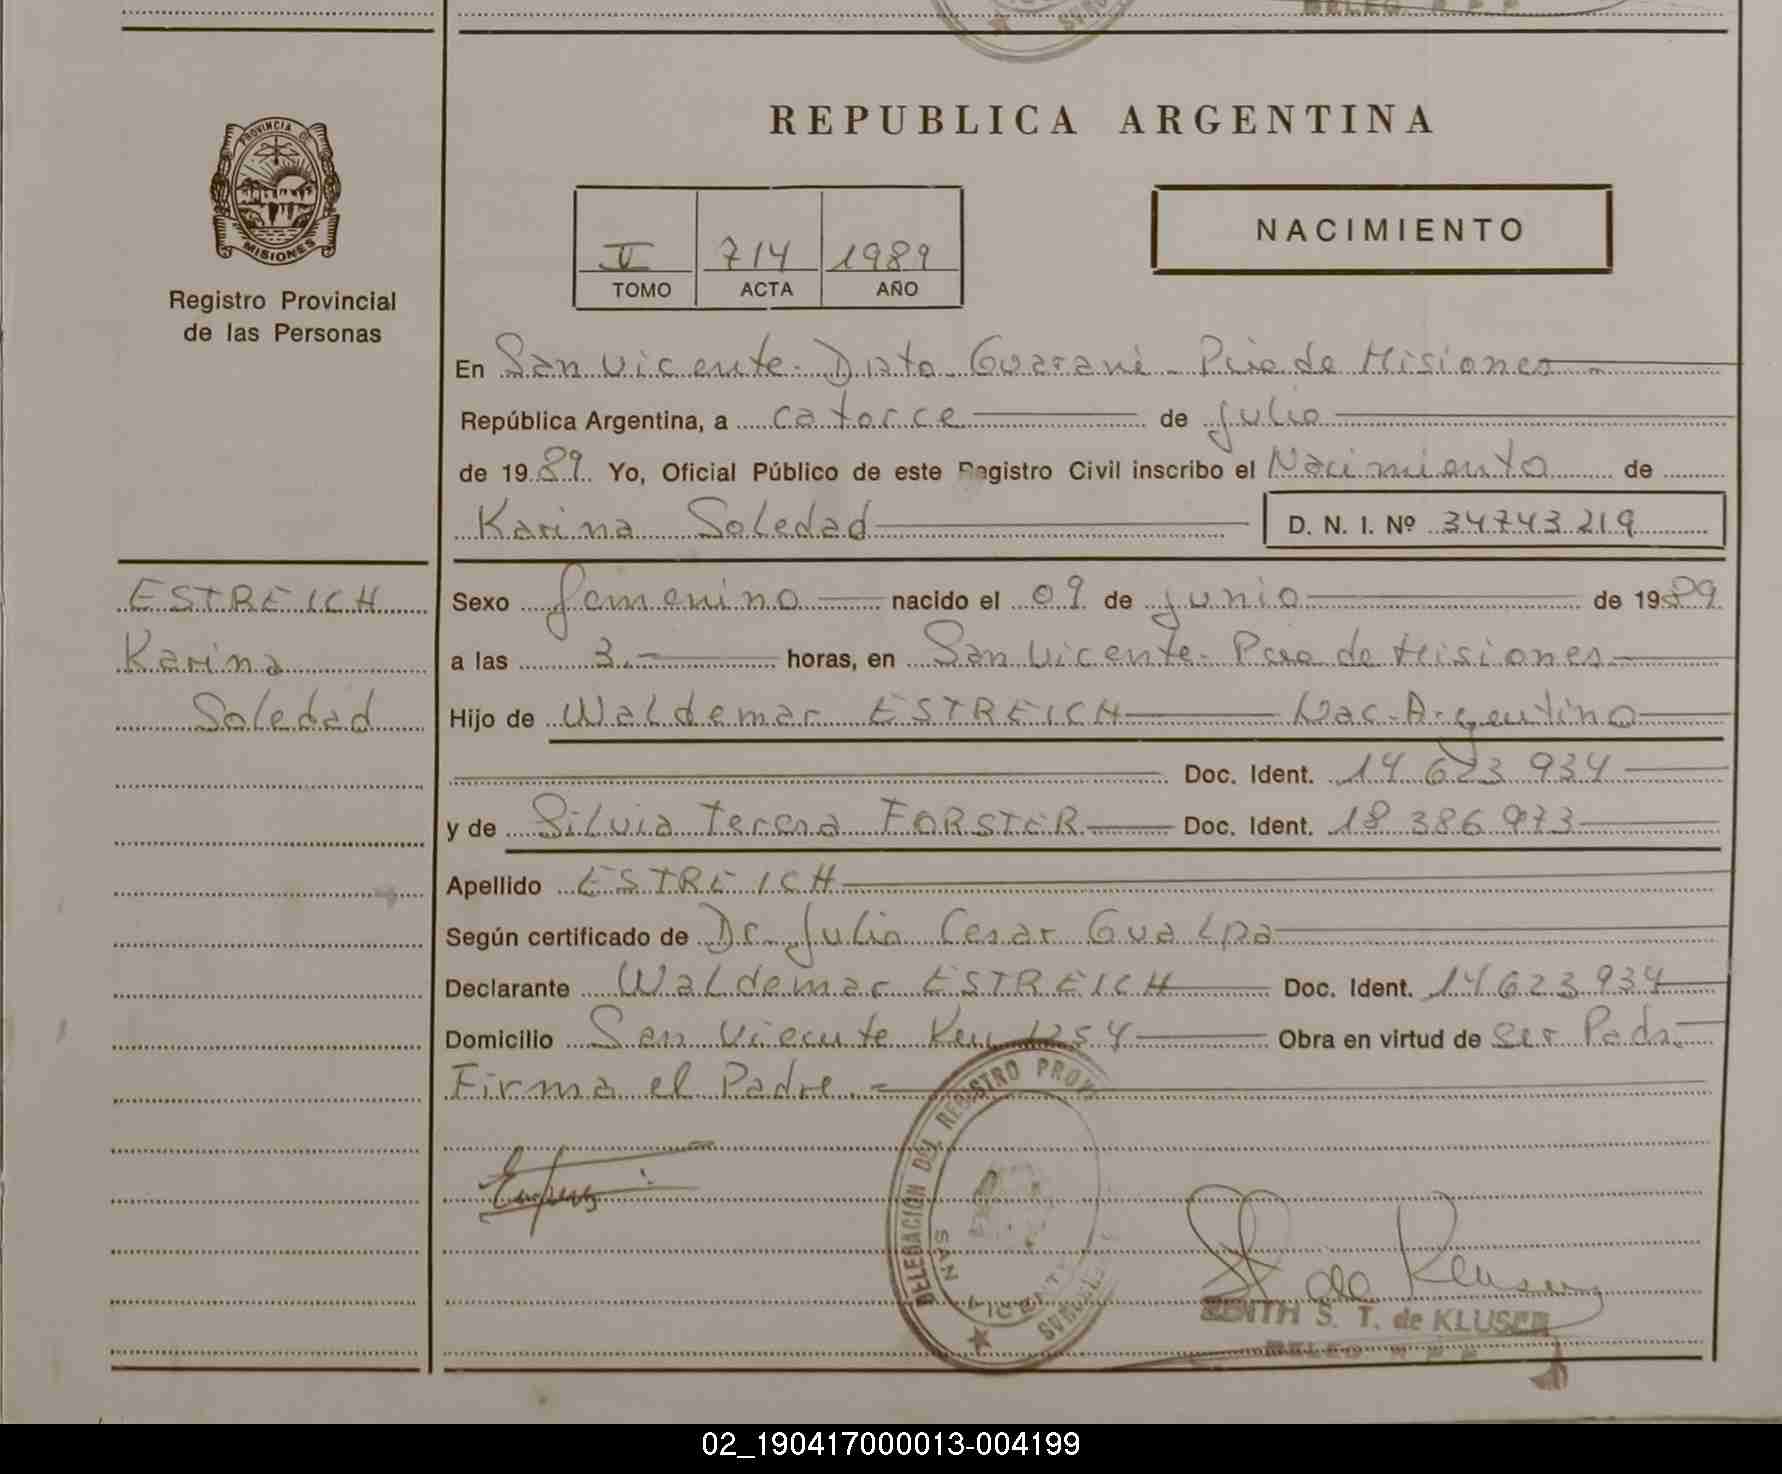 REPUBLICA ARGENTINA
PROVINCIA DE
MISIONES
Registro Provincial
de las Personas
NACIMIENTO
II 714 1989
TOMO ACTA AÑO
En San Vicente - Dpto. Guaraní - Pcia de Misiones
República Argentina, a catorce de julio
de 1989. Yo, Oficial Público de este Registro Civil inscribo el Nacimiento de
Karina Soledad D. N. I. Nº 34743219
ESTREICH
Karina
Soledad
Sexo femenino nacido el 09 de junio de 1989
a las 3.- horas, en San Vicente - Pcia de Misiones
Hijo de Waldemar ESTREICH Nac. Argentino
Doc. Ident. 14 623 934
y de Silvia Teresa FORSTER Doc. Ident. 18 386 973
Apellido ESTREICH
Según certificado de Dr. Julio Cesar Gualpa
Declarante Waldemar ESTREICH Doc. Ident. 14 623 934
Domicilio San Vicente Km 1254 Obra en virtud de ser Padre
Firma el Padre.-
DELEGACIÓN DEL REGISTRO PROV
SAN VICENTE
de Kluser
ZENITH S. T. de KLUSER
DELEG. R P P
02_190417000013-004199